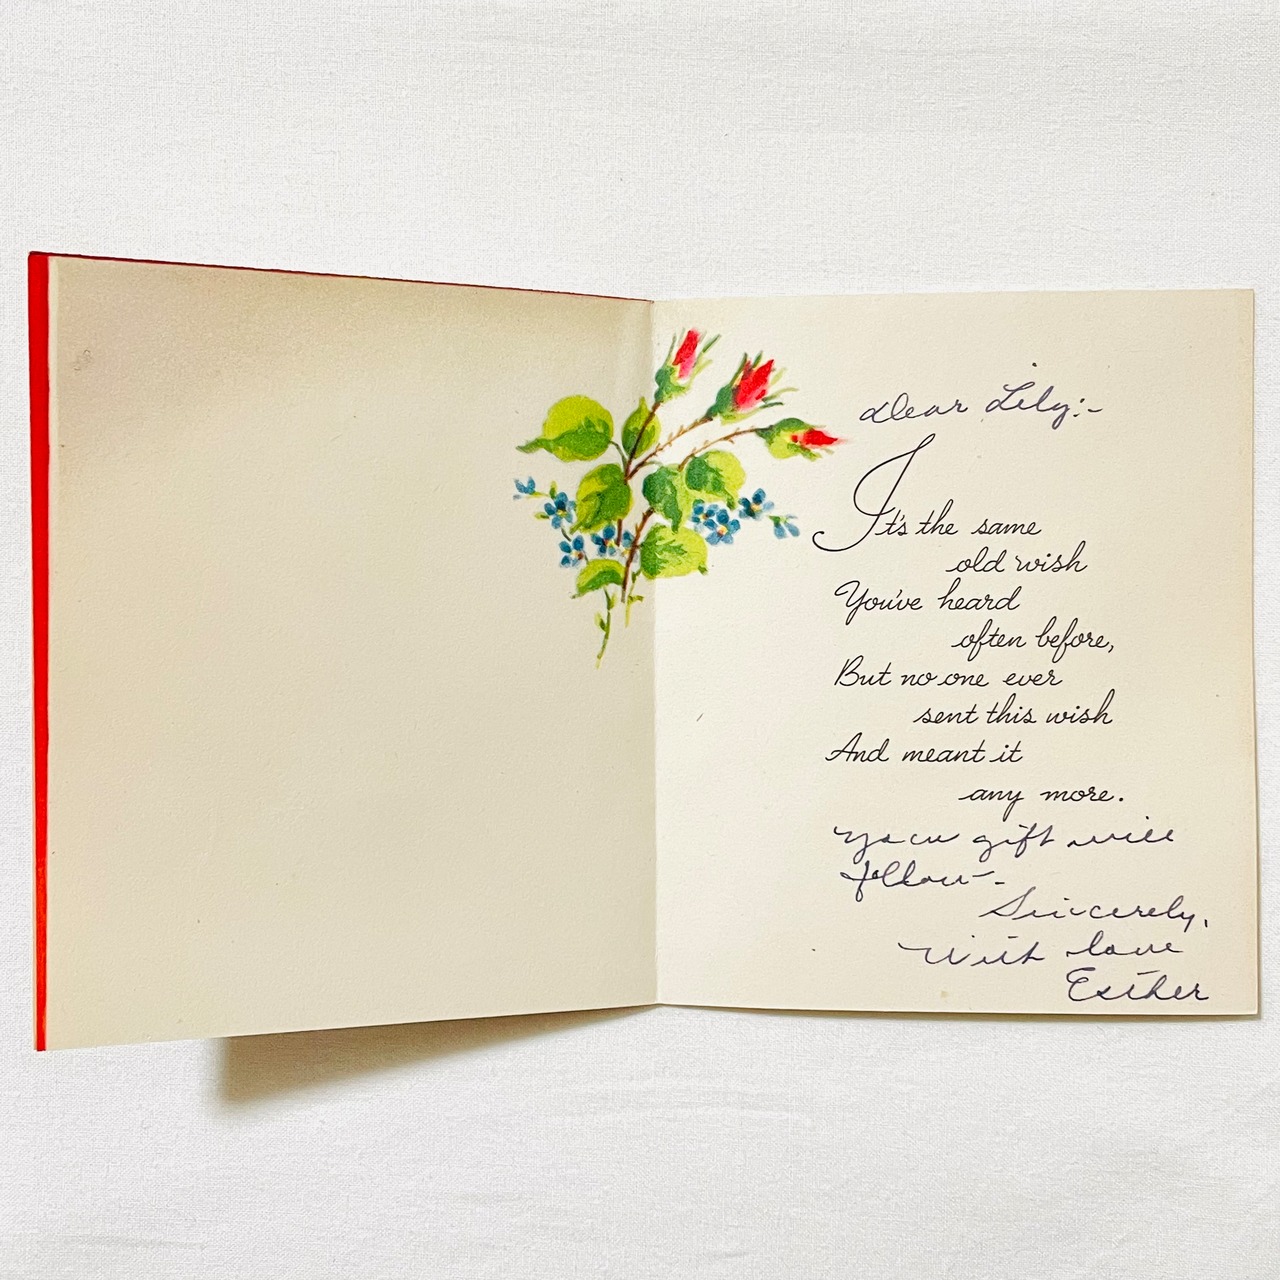 Dear Lily:-
It's the same
old wish
You've heard
often before,
But no one ever
sent this wish
And meant it
any more.
Your gift will
follow-.
Sincerely,
With love
Esther